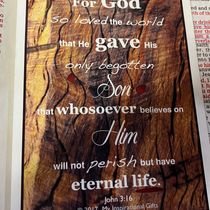 For God
so loved the world
that He gave His
only begotten
Son
that whosoever believes on
Him
will not perish but have
eternal life.
John 3:16
© 2017 My Inspirational Gifts